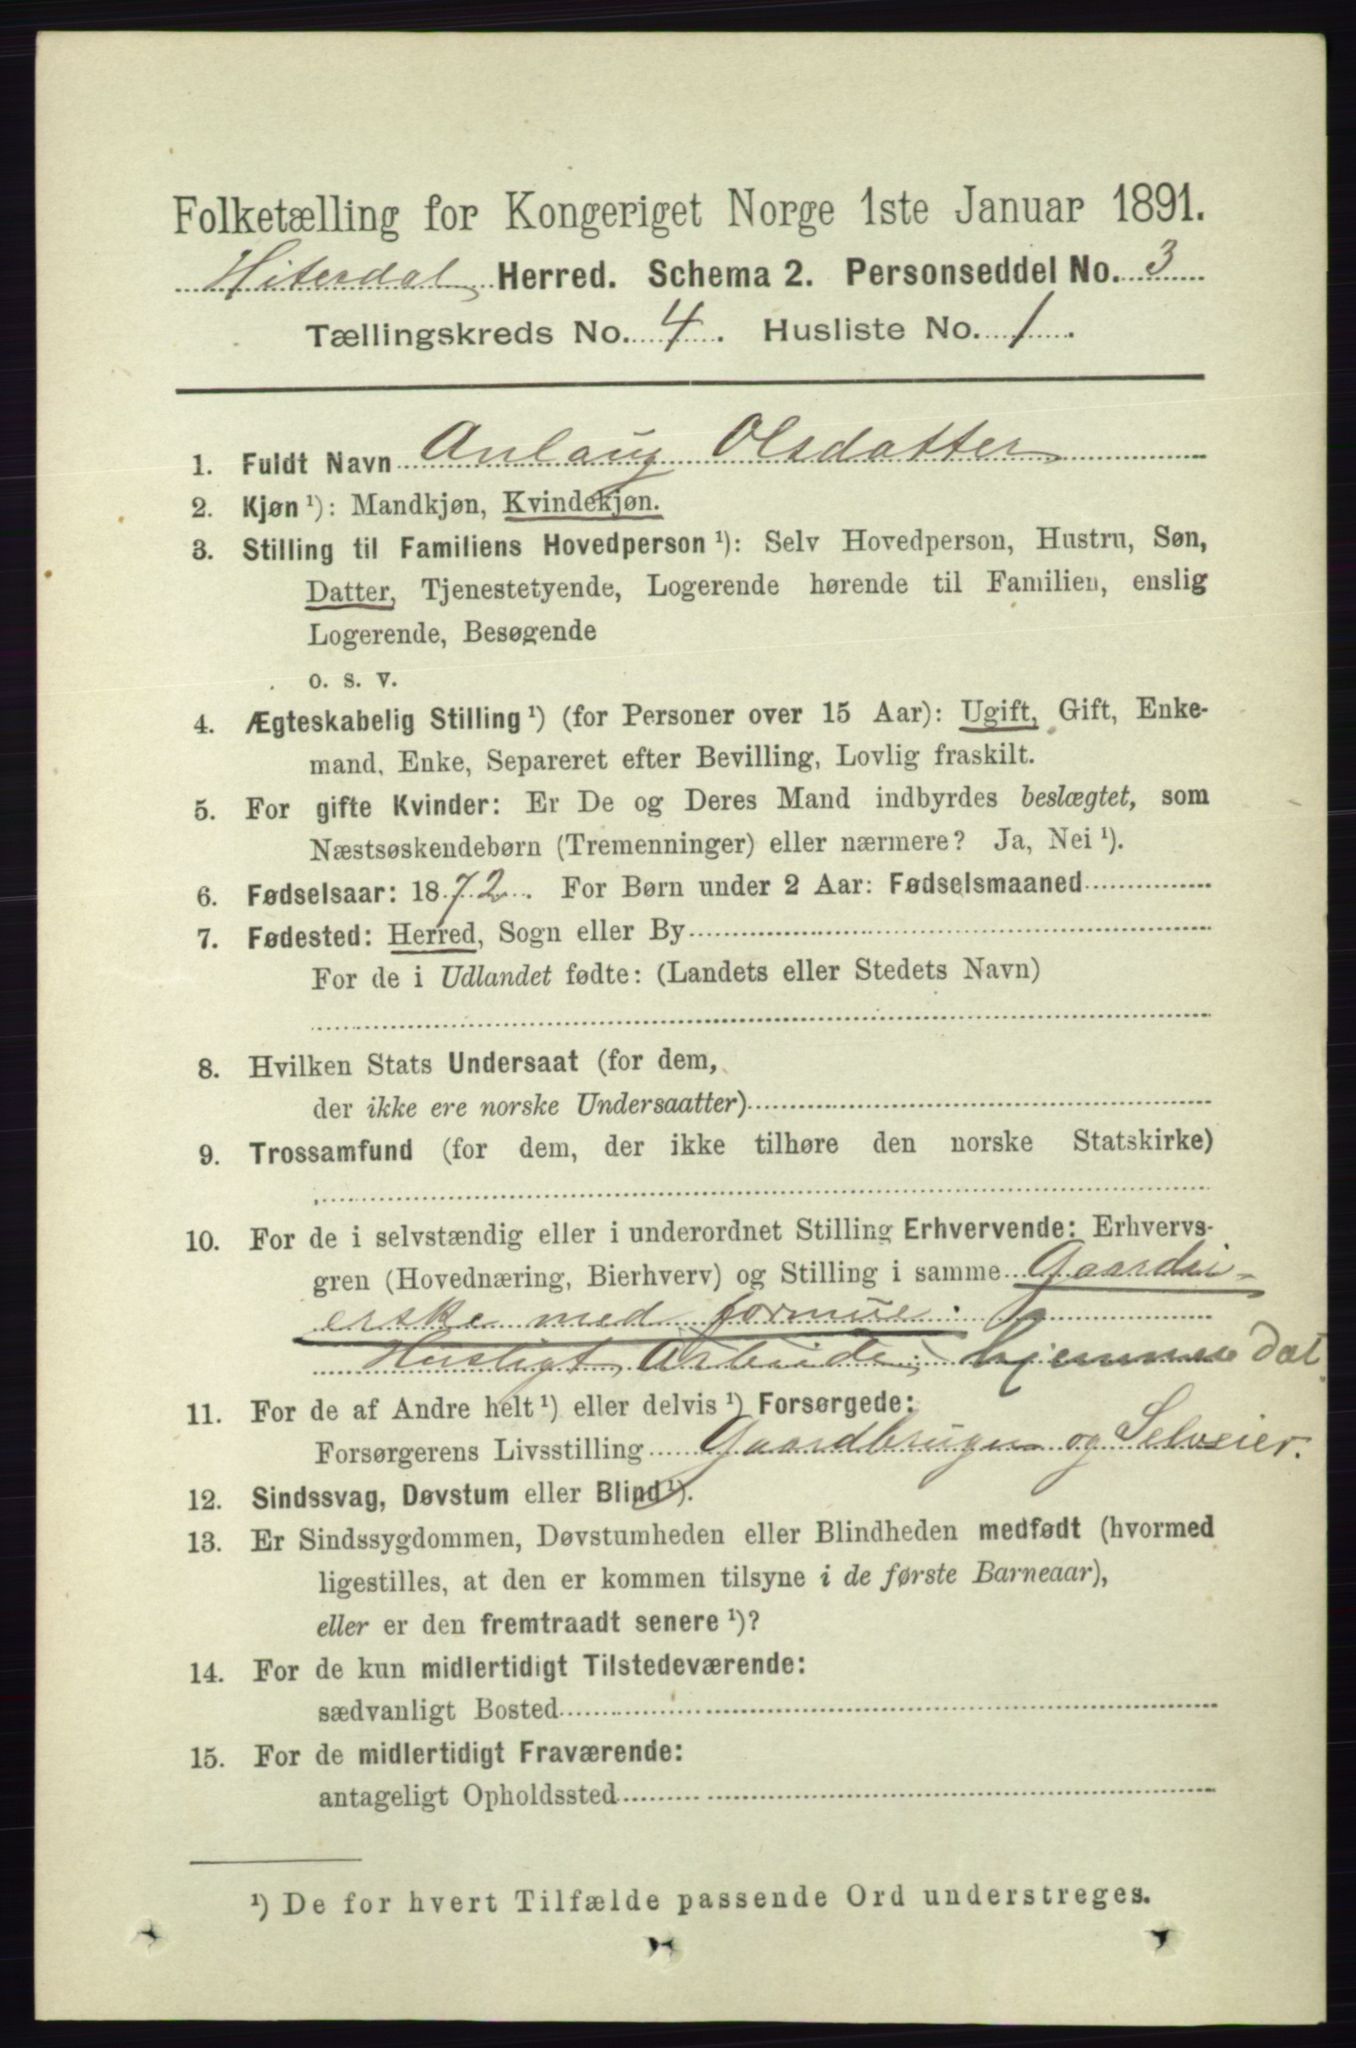 Folketælling for Kongeriget Norge 1ste Januar 1891.
Hiterdal Herred. Schema 2. Personseddel No. 3
Tællingskreds No. 4. Husliste No. 1.
1. Fuldt Navn Anlaug Olsdatter
2. Kjøn ¹): Mandkjøn, Kvindekjøn.
3. Stilling til Familiens Hovedperson ¹): Selv Hovedperson, Hustru, Søn,
Datter, Tjenestetyende, Logerende hørende til Familien, enslig
Logerende, Besøgende
o. s. v.
4. Ægteskabelig Stilling ¹) (for Personer over 15 Aar): Ugift, Gift, Enke-
mand, Enke, Separeret efter Bevilling, Lovlig fraskilt.
5. For gifte Kvinder: Er De og Deres Mand indbyrdes beslægtet, som
Næstsøskendebørn (Tremenninger) eller nærmere? Ja, Nei ¹).
6. Fødselsaar: 1872. For Børn under 2 Aar: Fødselsmaaned
7. Fødested: Herred, Sogn eller By
For de i Udlandet fødte: (Landets eller Stedets Navn)
8. Hvilken Stats Undersaat (for dem,
der ikke ere norske Undersaatter)
9. Trossamfund (for dem, der ikke tilhøre den norske Statskirke)
10. For de i selvstændig eller i underordnet Stilling Erhvervende: Erhvervs-
gren (Hovednæring, Bierhverv) og Stilling i samme Gaardei-
erske med formue.
Husligt Arbeide, hjemmev dat.
11. For de af Andre helt ¹) eller delvis ¹) Forsørgede:
Forsørgerens Livsstilling Gaardbruger og Selveier.
12. Sindssvag, Døvstum eller Blind ¹).
13. Er Sindssygdommen, Døvstumheden eller Blindheden medfødt (hvormed
ligestilles, at den er kommen tilsyne i de første Barneaar),
eller er den fremtraadt senere ¹)?
14. For de kun midlertidigt Tilstedeværende:
sædvanligt Bosted
15. For de midlertidigt Fraværende:
antageligt Opholdssted
¹) De for hvert Tilfælde passende Ord understreges.